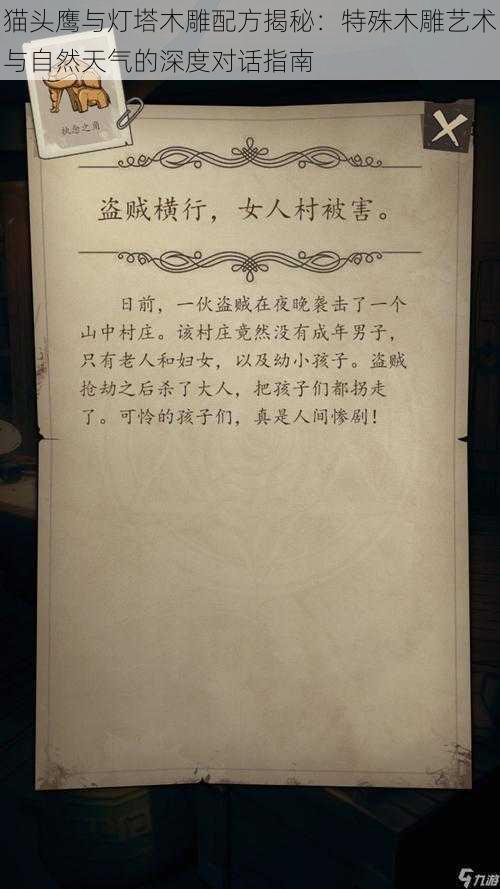 猫头鹰与灯塔木雕配方揭秘：特殊木雕艺术
与自然天气的深度对话指南
执念之角
盗贼横行，女人村被害。
日前，一伙盗贼在夜晚袭击了一个
山中村庄。该村庄竟然没有成年男子，
只有老人和妇女，以及幼小孩子。盗贼
抢劫之后杀了大人，把孩子们都拐走
了。可怜的孩子们，真是人间惨剧！
九游